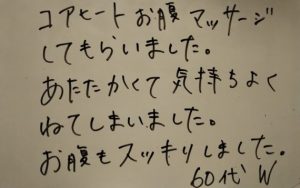 コアヒートお腹マッサージ
してもらいました。
あたたかくて気持ちよく
ねてしまいました。
お腹もスッキりしました。
60代 W